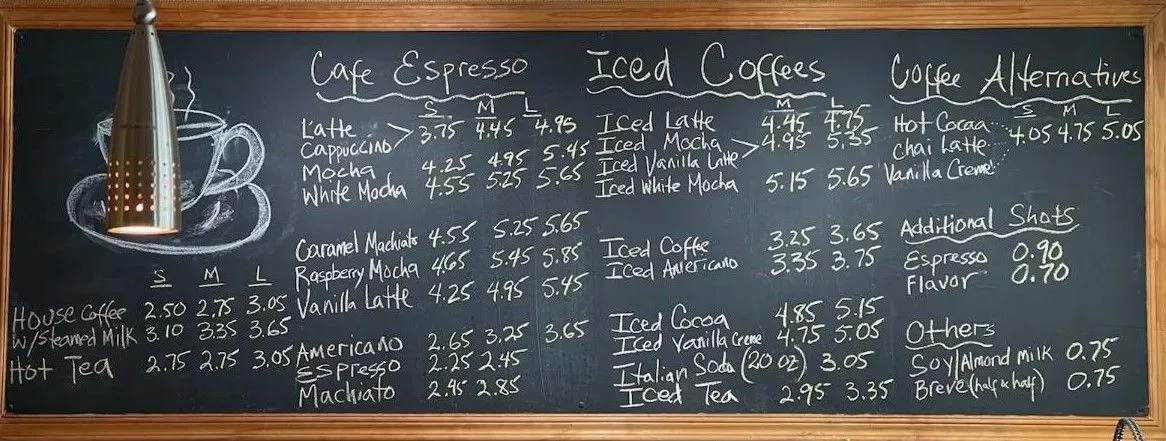 S M L
House Coffee 2.50 2.75 3.05
w/Steamed Milk 3.10 3.35 3.65
Hot Tea 2.75 2.75 3.05
Cafe Espresso
S M L
Latte
Cappuccino 3.75 4.45 4.95
Mocha 4.25 4.95 5.45
White Mocha 4.55 5.25 5.65
Caramel Machiato 4.55 5.25 5.65
Raspberry Mocha 4.65 5.45 5.85
Vanilla Latte 4.25 4.95 5.45
Americano 2.65 3.25 3.65
Espresso 2.25 2.45
Machiato 2.45 2.85
Iced Coffees
M L
Iced Latte 4.45 4.75
Iced Mocha 4.95 5.35
Iced Vanilla Latte
Iced White Mocha 5.15 5.65
Iced Coffe 3.25 3.65
Iced Americano 3.35 3.75
Iced Cocoa 4.85 5.15
Iced Vanilla Creme 4.75 5.05
Italian Soda (20 oz) 3.05
Iced Tea 2.95 3.35
Coffee Alternatives
S M L
Hot Cocoa 4.05 4.75 5.05
Chai Latte
Vanilla Creme
Additional Shots
Espresso 0.90
Flavor 0.70
Others
Soy/Almond milk 0.75
Breve (half & half) 0.75